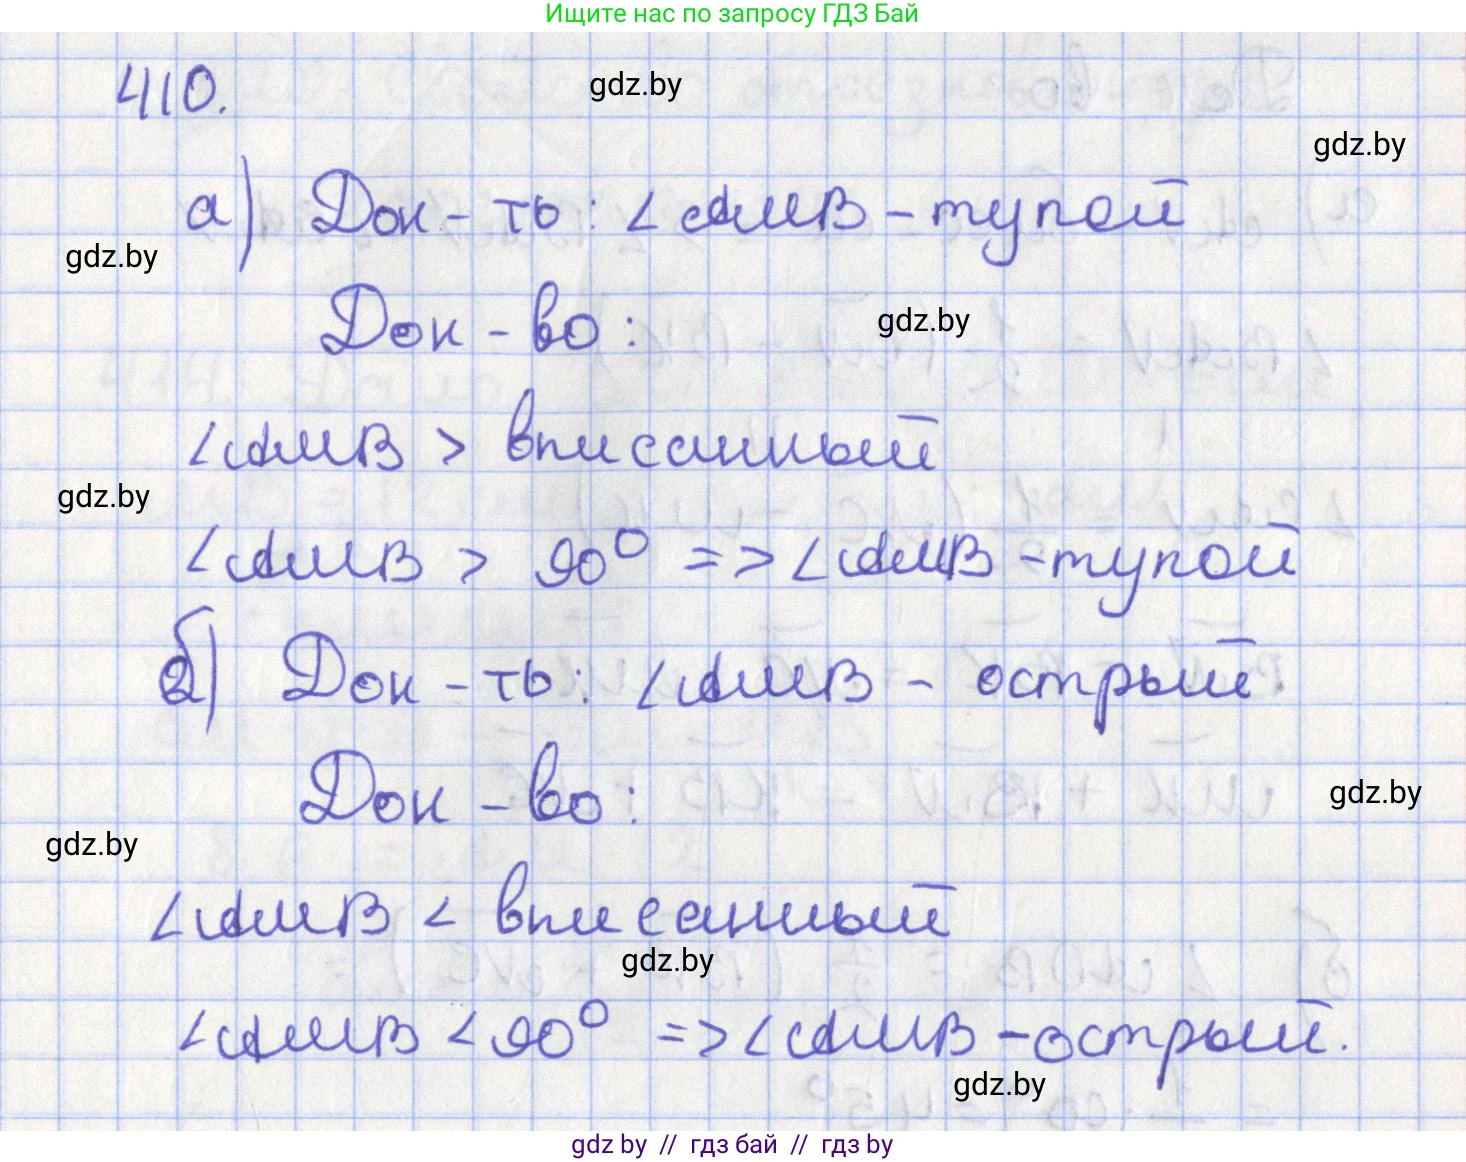 Ищите нас по запросу ГДЗ Бай
410.
gdz.by
gdz.by
а) Док-ть: ∠AMB - тупой
gdz.by
Док-во:
gdz.by
∠AMB > вписанный
gdz.by
∠AMB > 90° => ∠AMB - тупой
б) Док-ть: ∠AMB - острый.
Док-во:
gdz.by
gdz.by
∠AMB < вписанный
gdz.by
∠AMB < 90° => ∠AMB - острый.
gdz.by
gdz by // гдз бай // гдз by